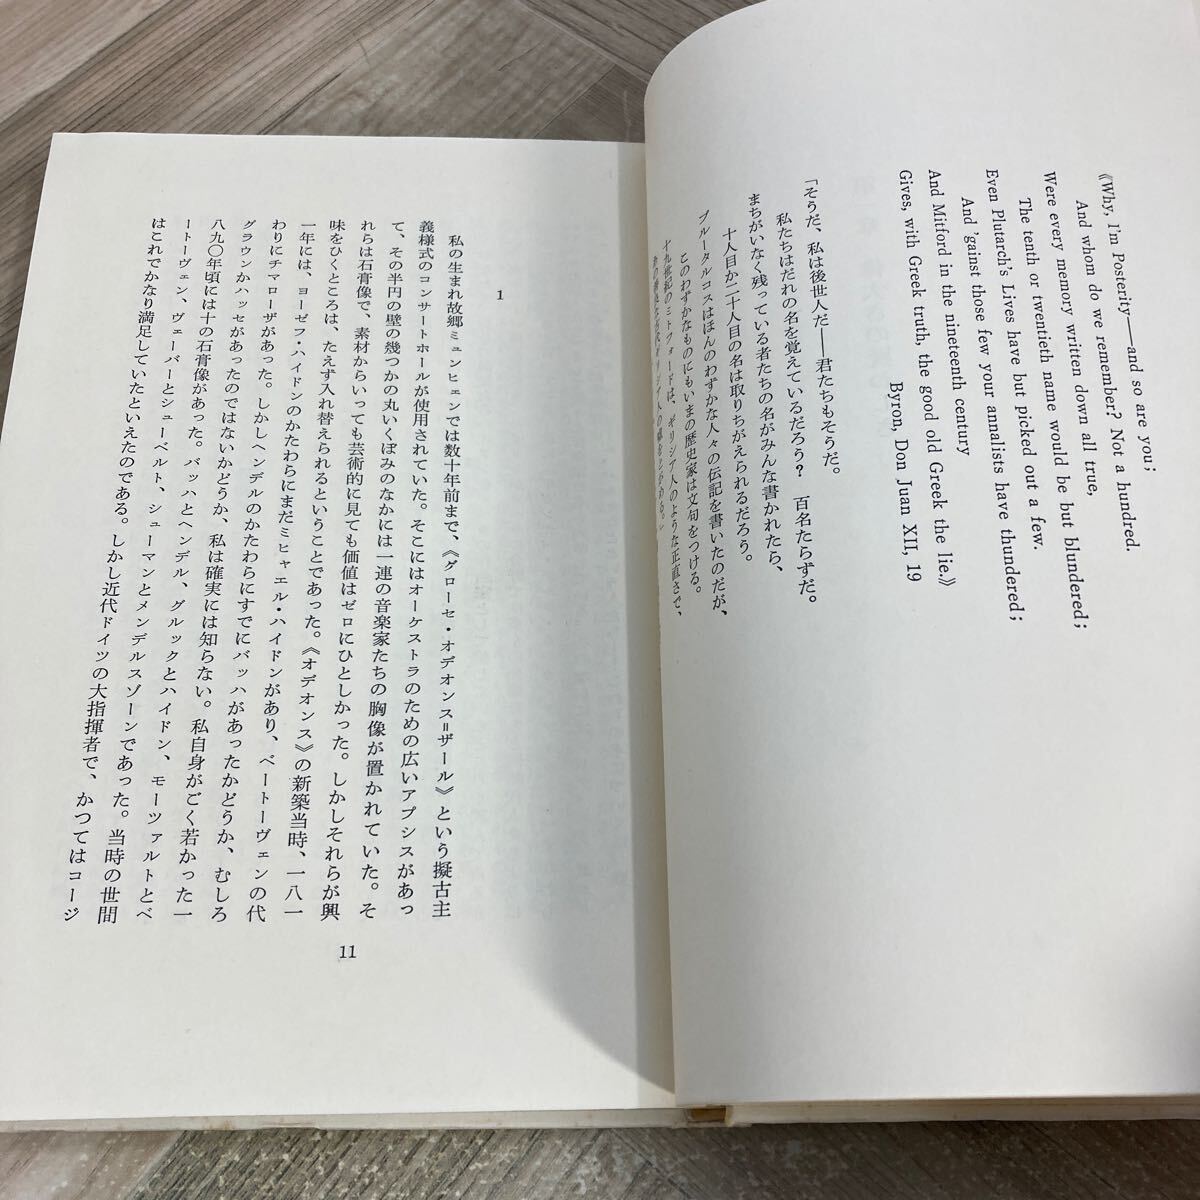 《Why, I'm Posterity—and so are you;
And whom do we remember? Not a hundred.
Were every memory written down all true,
The tenth or twentieth name would be but blundered;
Even Plutarch's Lives have but picked out a few.
And 'gainst those few your annalists have thundered;
And Mitford in the nineteenth century
Gives, with Greek truth, the good old Greek the lie.》
Byron, Don Juan XII, 19
「そうだ、私は後世人だ——君たちもそうだ。
私たちはだれの名を覚えているだろう? 百名たらずだ。
まちがいなく残っている者たちの名がみんな書かれたら、
十人目か二十人目の名は取りちがえられるだろう。
プルータルコスはほんのわずかな人々の伝記を書いたのだが、
このわずかなものにもいまの歴史家は文句をつける。
十九世紀のミトフォードは、ギリシア人のような正直さで、
1
私の生まれ故郷ミュンヒェンでは数十年前まで、《グローセ・オデオンス=ザール》という擬古主
義様式のコンサートホールが使用されていた。そこにはオーケストラのための広いアプシスがあっ
て、その半円の壁の幾つかの丸いくぼみのなかには一連の音楽家たちの胸像が置かれていた。そ
れらは石膏像で、素材からいっても芸術的に見ても価値はゼロにひとしかった。しかしそれらが興
味をひくところは、たえず入れ替えられるということであった。《オデオンス》の新築当時、一八一
一年には、ヨーゼフ・ハイドンのかたわらにまだミヒャエル・ハイドンがあり、ベートーヴェンの代
わりにチマローザがあった。しかしヘンデルのかたわらにすでにバッハがあったかどうか、むしろ
グラウンかハッセがあったのではないかどうか、私は確実には知らない。私自身がごく若かった一
八九〇年頃には十の石膏像があった。バッハとヘンデル、グルックとハイドン、モーツァルトとベ
ートーヴェン、ヴェーバーとシューベルト、シューマンとメンデルスゾーンであった。当時の世間
はこれでかなり満足していたといえたのである。しかし近代ドイツの大指揮者で、かつてはコージ
11